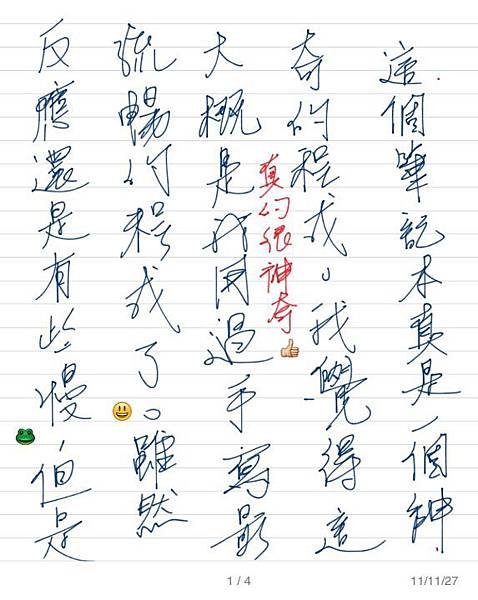 這個筆記本真是一個神
奇的程式。我覺得這
真的很神奇
大概是我用過手寫最
流暢的程式了。雖然
反應還是有些慢 但是
1 / 4
11/11/27